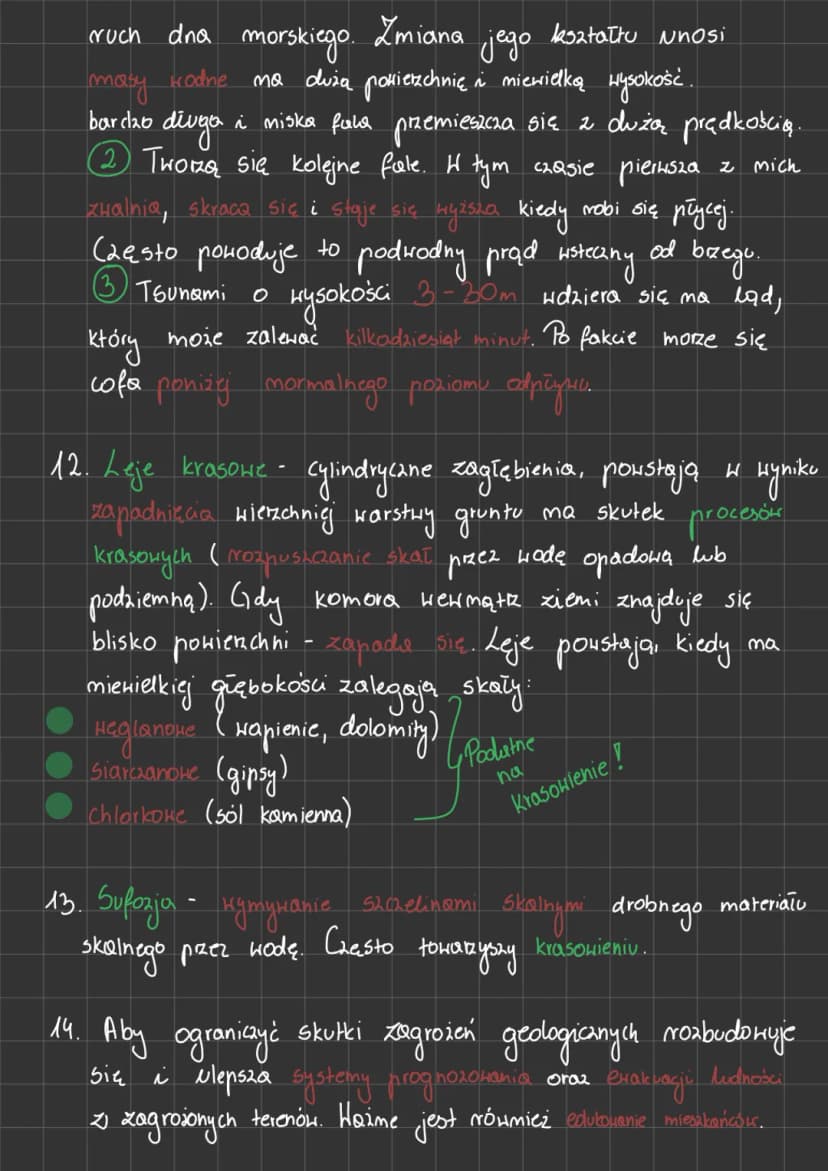 ruch dna morskiego. Zmiana jego kształtu unosi
masy wodne na dużą powierzchnię i niewielką wysokość.
bardzo długa i niska fala przemieszcza się z dużą prędkością.
2 Tworzą się kolejne fale. W tym czasie pierwsza z nich
zwalnia, skraca się i staje się wyższa kiedy robi się płycej.
Często powoduje to podwodny prąd wsteczny od brzegu.
3 Tsunami o wysokości 3-30m wdziera się na ląd,
który może zalewać kilkadziesiąt minut. Po fakcie morze się
cofa poniżej normalnego poziomu odpływu.
12. Leje krasowe - cylindryczne zagłębienia, powstają w wyniku
zapadnięcia wierzchniej warstwy gruntu na skutek procesów
krasowych (rozpuszczanie skał przez wodę opadową lub
podziemną). Gdy komora wewnątrz ziemi znajduje się
blisko powierzchni - zapada się. Leje powstają, kiedy na
niewielkiej głębokości zalegają skały:
węglanowe (wapienie, dolomity)
siarczanowe (gipsy)
chlorkowe (sól kamienna)
Podatne
na
krasowienie!
13. Sufozja - wymywanie szczelinami skalnymi drobnego materiału
skalnego przez wodę. Często towarzyszy krasowieniu.
14. Aby ograniczyć skutki zagrożeń geologicznych rozbudowuje
się i ulepsza systemy prognozowania oraz ewakuacji ludności
z zagrożonych terenów. Ważne jest również edukowanie mieszkańców.